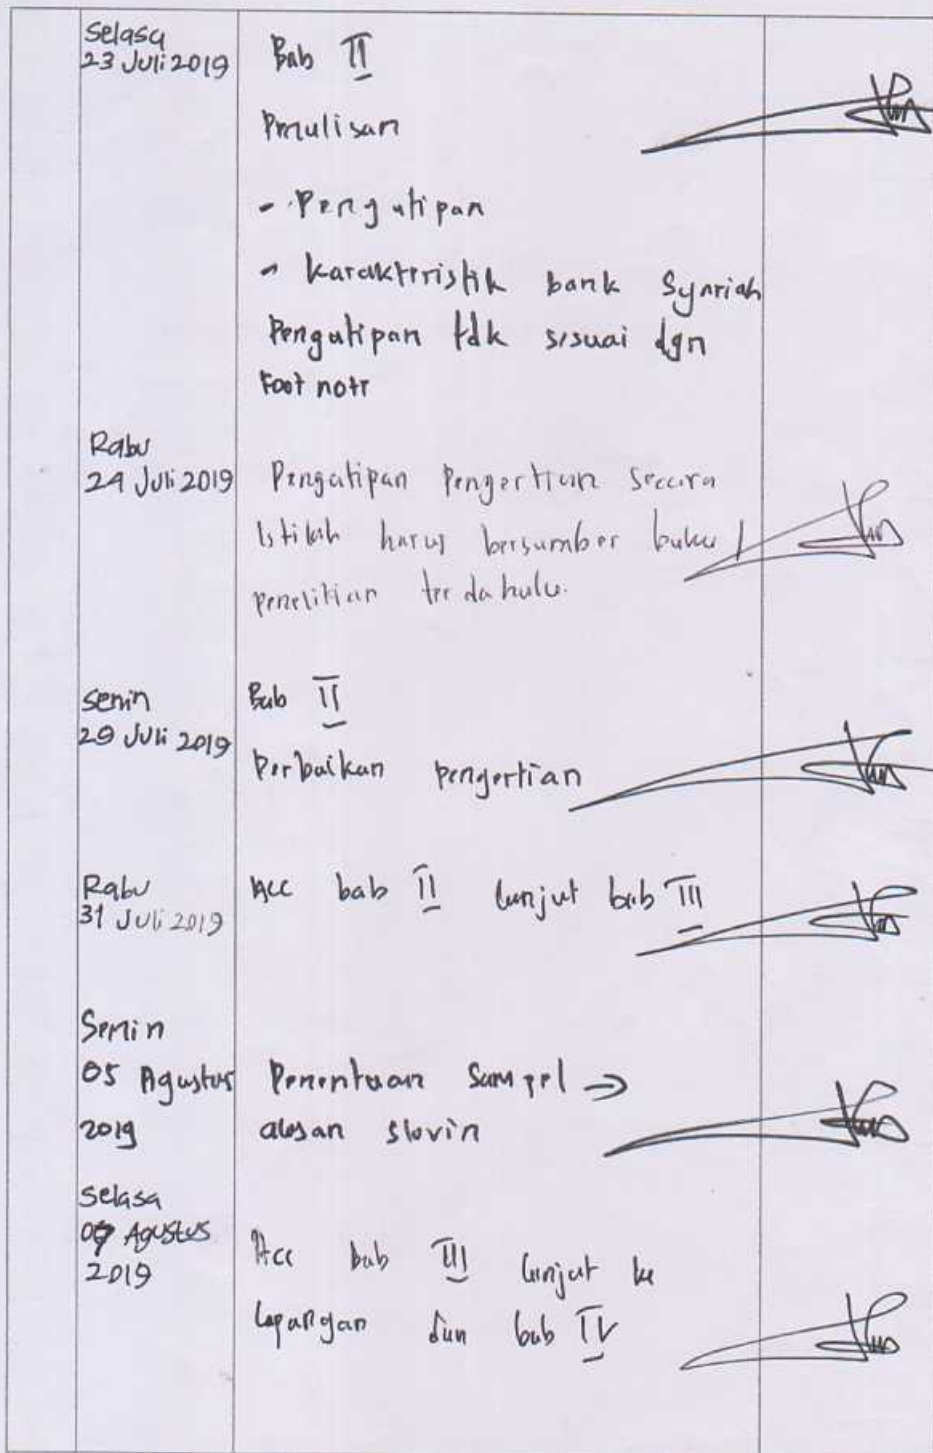 Selasa
23 Juli 2019
Bab II
Penulisan
- Pengutipan
- Karakteristik bank Syariah
Pengutipan tdk sesuai dgn
Foot note
Rabu
24 Juli 2019
Pengutipan Pengertian secara
Istilah harus bersumber buku /
penelitian terdahulu.
Senin
29 Juli 2019
Bab II
Perbaikan pengertian
Rabu
31 Juli 2019
Acc bab II lanjut bab III
Senin
05 Agustus
2019
Penentuan Sampel →
alasan slovin
Selasa
Agustus
2019
Acc bab III lanjut ke
lapangan dan bab IV